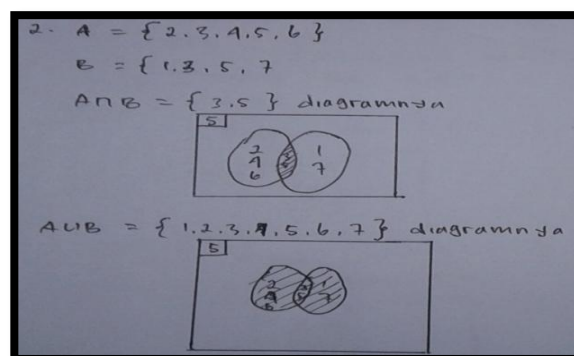 2. A = {2.3.4,5,6}
B = {1.3,5,7
A∩B = {3.5} diagramnya
5
2
4
6
3
5
1
7
A∪B = {1.2.3.4,5.6,7} diagramnya
5
2
4
6
3
5
1
7